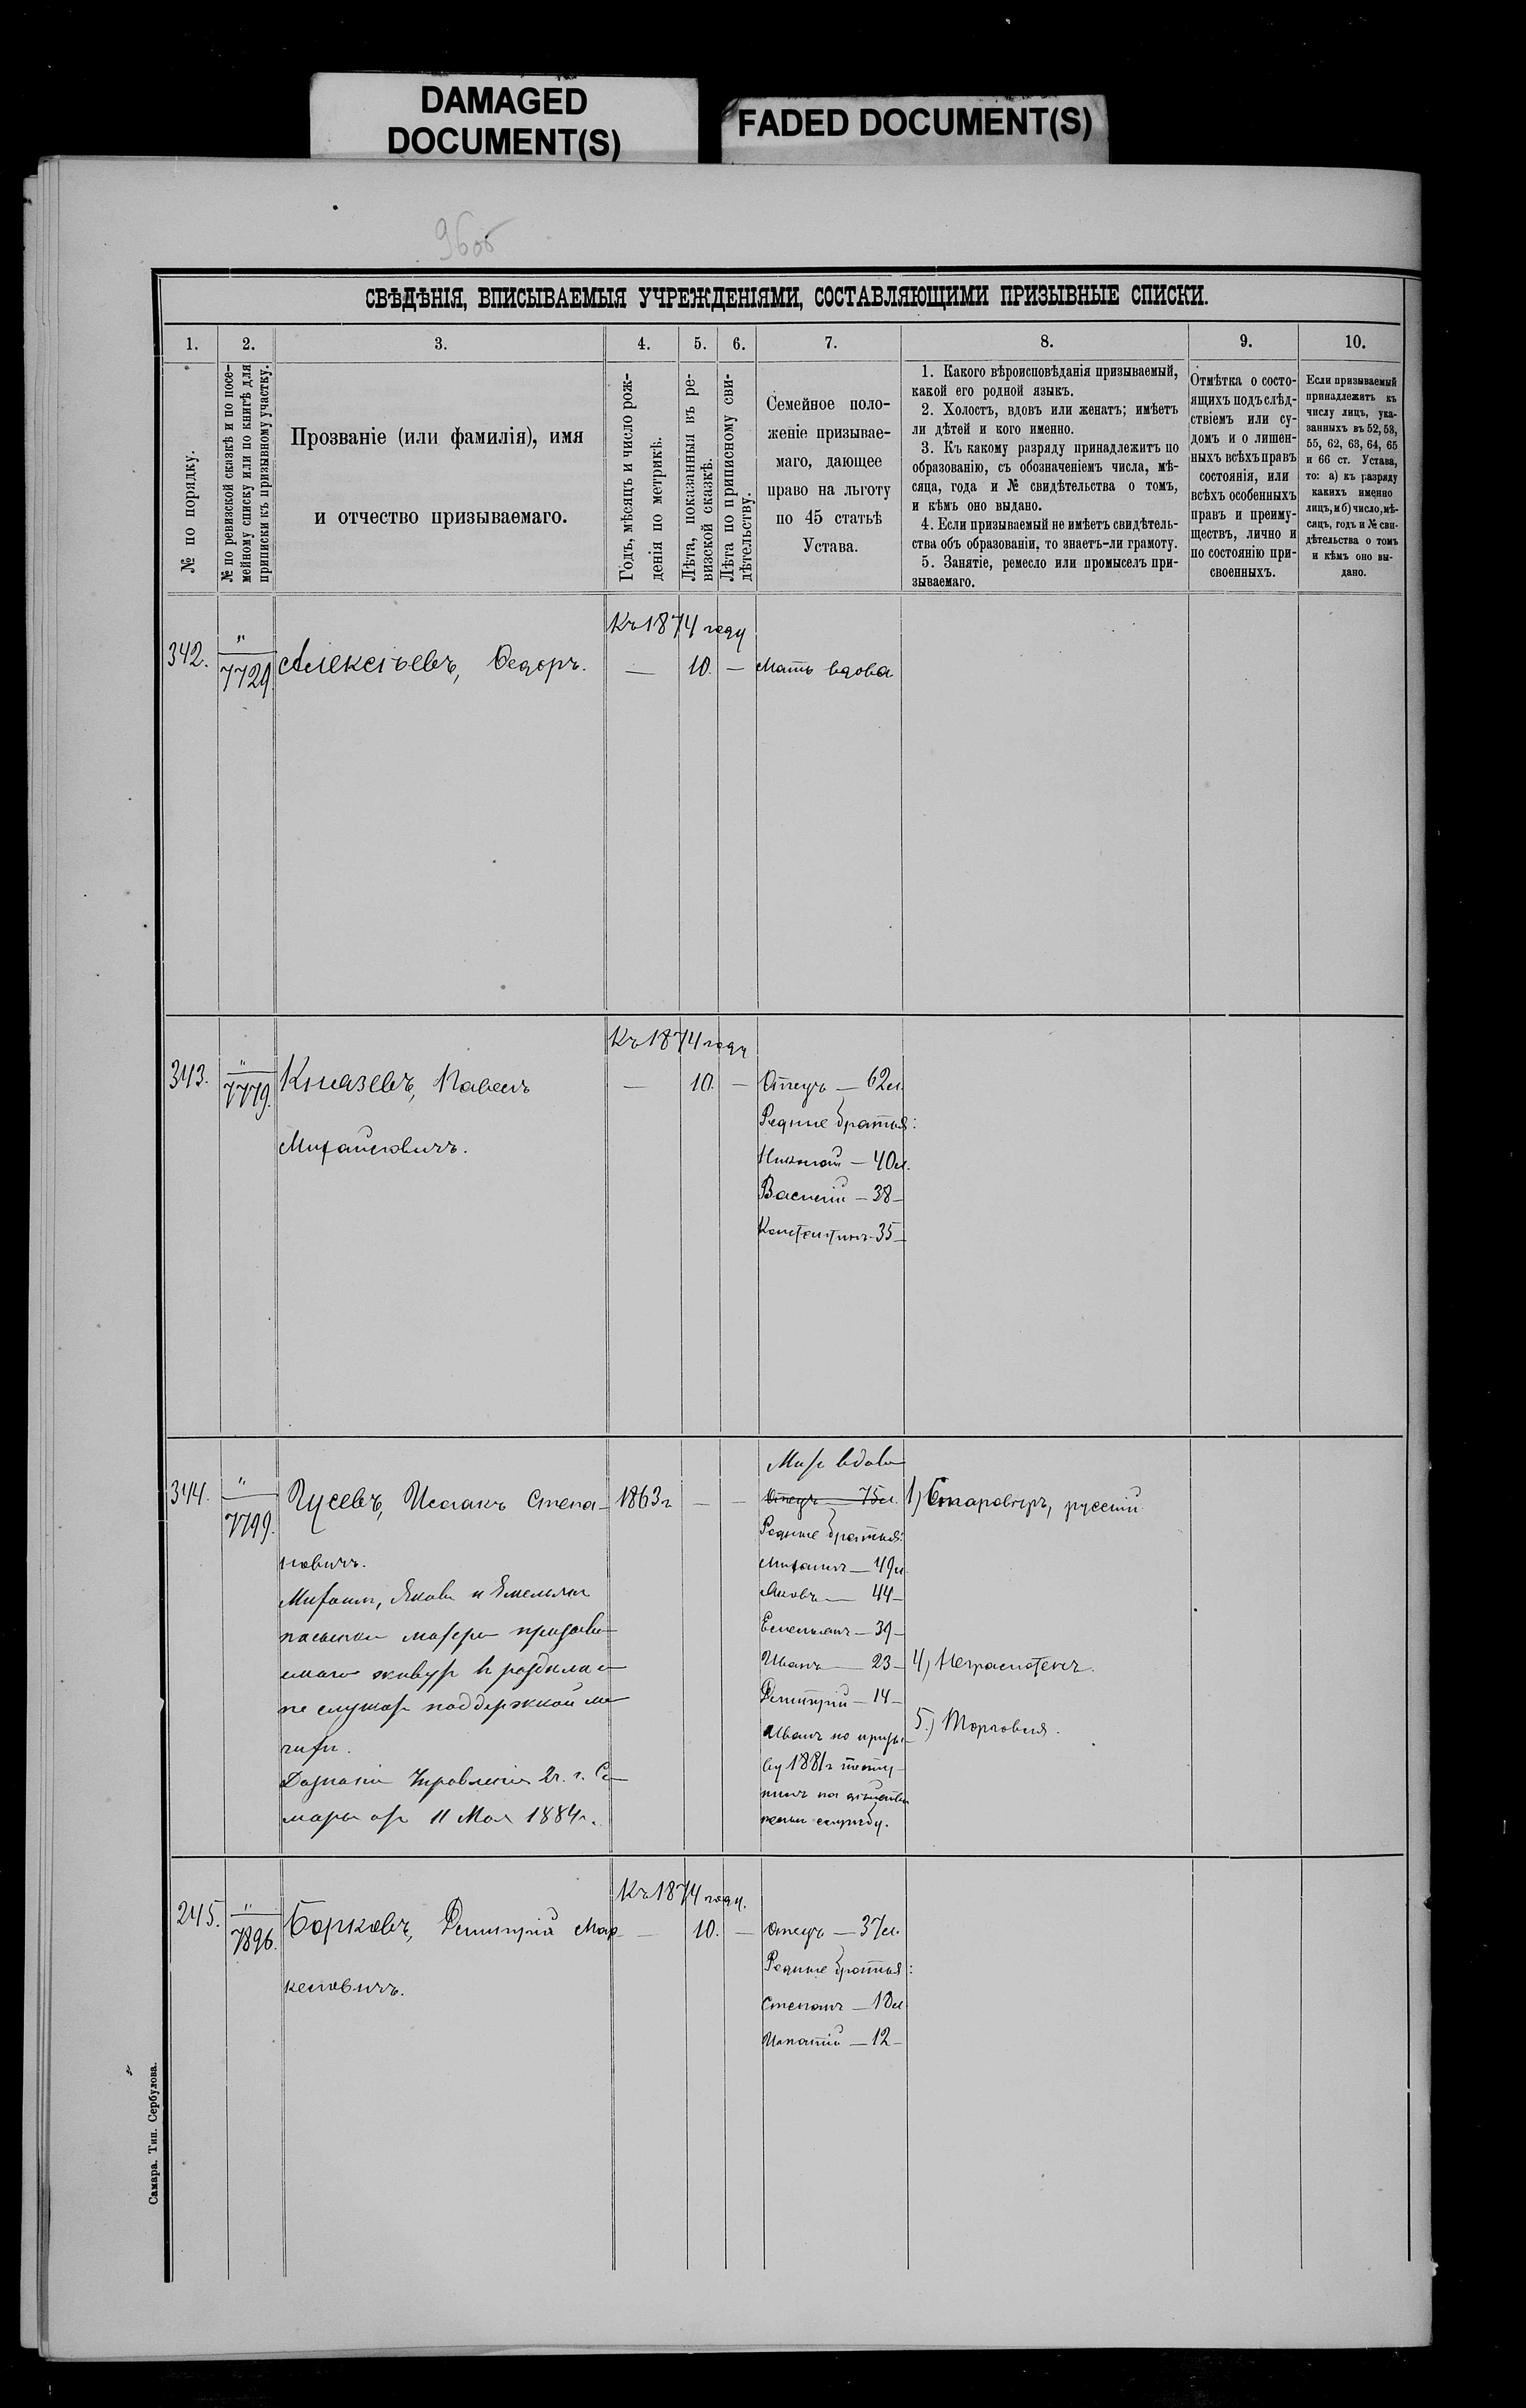 DAMAGED
DOCUMENT(S)
FADED DOCUMENT(S)
96об
СВѢДѢНІЯ, ВПИСЫВАЕМЫЯ УЧРЕЖДЕНІЯМИ, СОСТАВЛЯЮЩИМИ ПРИЗЫВНЫЕ СПИСКИ.
1. 2. 3. 4. 5. 6. 7. 8. 9. 10.
№ по порядку.
№ по ревизской сказкѣ и по посе-
мейному списку или по книгѣ для
приписки къ призывному участку.
Прозваніе (или фамилія), имя
и отчество призываемаго.
Годъ, мѣсяцъ и число рож-
денія по метрикѣ.
Лѣта, показанныя въ ре-
визской сказкѣ.
Лѣта по приписному сви-
дѣтельству.
Семейное поло-
женіе призывае-
маго, дающее
право на льготу
по 45 статьѣ
Устава.
1. Какого вѣроисповѣданія призываемый,
какой его родной языкъ.
2. Холостъ, вдовъ или женатъ; имѣетъ
ли дѣтей и кого именно.
3. Къ какому разряду принадлежитъ по
образованію, съ обозначеніемъ числа, мѣ-
сяца, года и № свидѣтельства о томъ,
и кѣмъ оно выдано.
4. Если призываемый не имѣетъ свидѣтель-
ства объ образованіи, то знаетъ-ли грамоту.
5. Занятіе, ремесло или промыселъ при-
зываемаго.
Отмѣтка о состо-
ящихъ подъ слѣд-
ствіемъ или су-
домъ и о лишен-
ныхъ всѣхъ правъ
состоянія, или
всѣхъ особенныхъ
правъ и преиму-
ществъ, лично и
по состоянію при-
своенныхъ.
Если призываемый
принадлежитъ къ
числу лицъ, ука-
занныхъ въ 52, 53,
55, 62, 63, 64, 65
и 66 ст. Устава,
то: а) къ разряду
какихъ именно
лицъ, и б) число, мѣ-
сяцъ, годъ и № сви-
дѣтельства о томъ
и кѣмъ оно вы-
дано.
Къ 1874 году
342. " 7729 Алексѣевъ, Ѳедоръ. — 10. — Мать вдова
Къ 1874 году
343. " 7779. Князевъ, Павелъ — 10. — Отецъ — 62 л.
Михайловичъ.
Родные братья:
Николай — 40 л.
Василій — 38 —
Константинъ — 35 —
344. " 7799. Гусевъ, Исаакъ Степа- 1863 г — —
новичъ.
Михаил, Яков и Емельян
пасынки матери призыва-
емаго живут в разделе и
не служат поддержкой ма-
чихи.
Дознание Управления 2 ч. г. Са-
мары от 11 Мая 1884 г.
Мать вдова
Отецъ — 75 л.
Родные братья:
Михаилъ — 49 л
Яковъ — 44 —
Емельянъ — 39 —
Иванъ — 23 —
Димитрій — 14 —
Иванъ по призы-
ву 1881 г посту-
пилъ на дѣйстви-
тельн службу.
1) Старовѣръ, русскій
4) Неграмотенъ.
5.) Торговля.
Къ 1874 году.
245. " 7896. Борковъ, Димитрій Мар- — 10. — Отецъ — 37 л.
келовичъ.
Родные братья:
Степанъ — 18 л
Ипатій — 12 —
Самара. Тип. Сербулова.